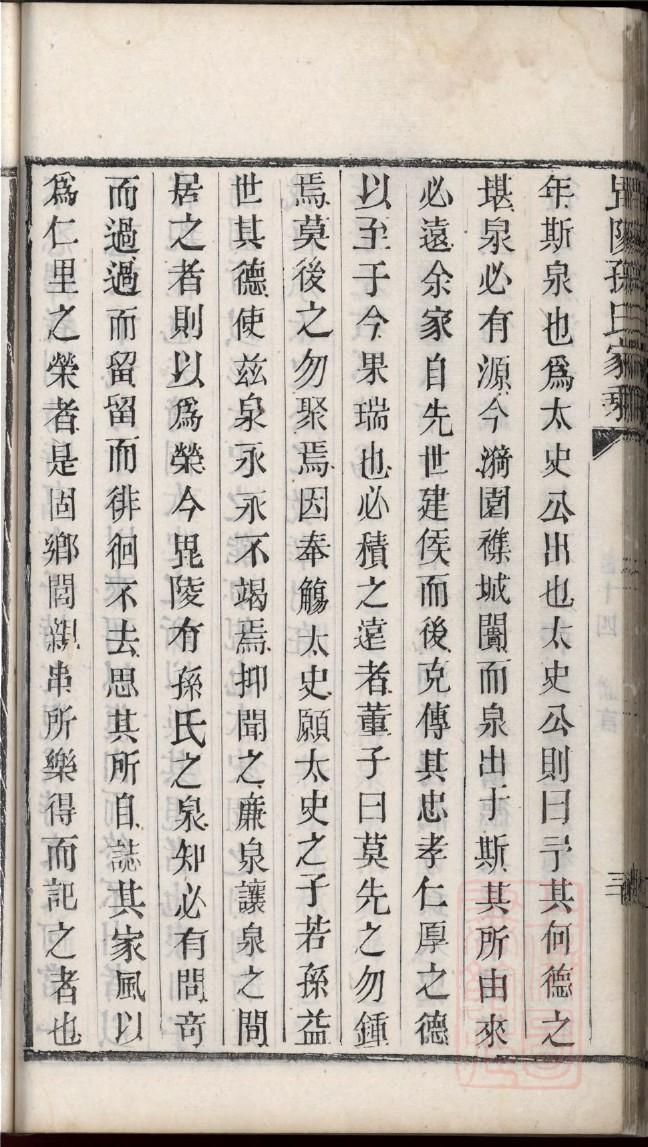 毘陵孫氏家乘
三
年斯泉也爲太史公出也太史公則曰予其何德之
堪泉必有源今漪園襍城闠而泉出于斯其所由來
必遠余家自先世建侯而後克傳其忠孝仁厚之德
以至于今果瑞也必積之遠者董子曰莫先之勿鍾
焉莫後之勿聚焉因奉觴太史願太史之子若孫益
世其德使玆泉永永不竭焉抑聞之亷泉讓泉之間
居之者則以爲榮今毘陵有孫氏之泉知必有問竒
而過過而留留而徘徊不去思其所自誌其家風以
爲仁里之榮者是固鄉閭親串所樂得而記之者也